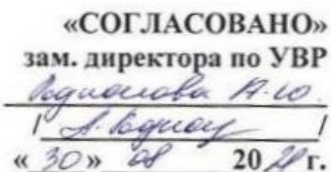 «СОГЛАСОВАНО»
зам. директора по УВР
Родионова А.Ю.
/ /
« 30 » 08 20 г.